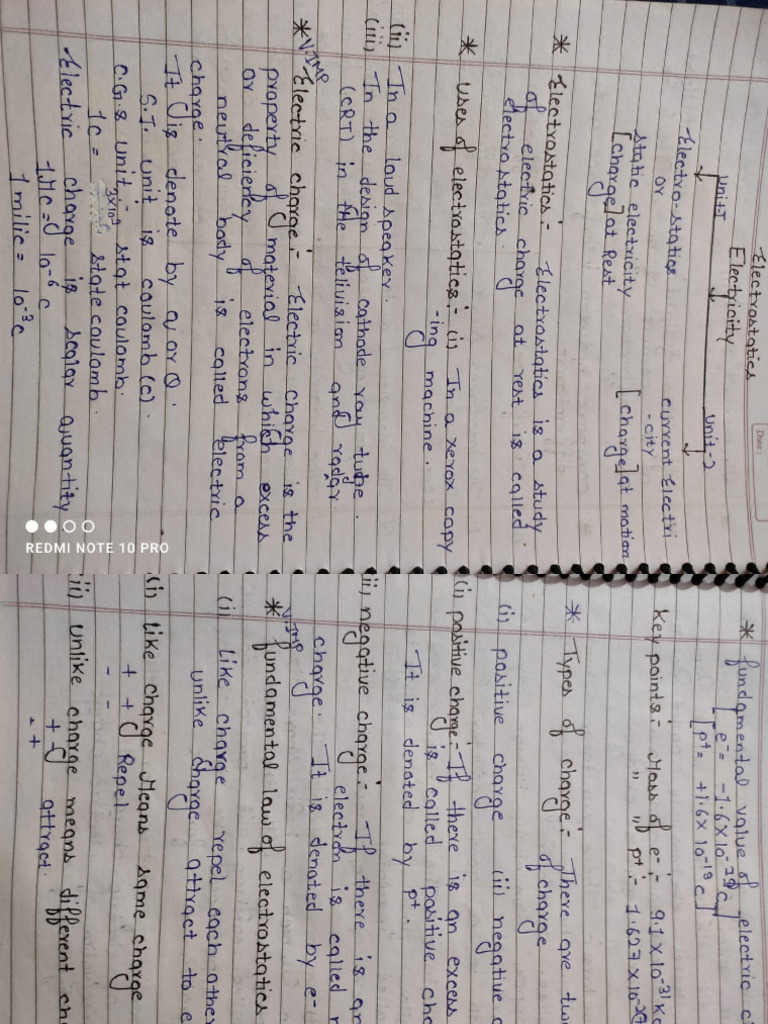 Date:
Electrostatics
Electricity
Unit-I
Unit-2
Electro-statics
or
static electricity
[charge] at Rest
current Electri
-city
[charge] at motion
* Electrostatics:- Electrostatics is a study
of electric charge at rest is called
electrostatics.
* Uses of electrostatics:- (i) In a xerox copy
-ing machine.
(ii) In a loud speaker.
(iii) In the design of cathode ray tube.
(CRT) in the telivision and radar
V.Imp
* Electric charge:- Electric charge is the
property of material in which excess
or deficiency of electrons from a
neutral body is called electric
charge.
It is denote by q or Q.
S.I. unit is coulomb (c).
C.G.S unit - stat coulomb.
1c = 3x10⁹ state coulomb.
Electric charge is scalar quantity
1μc = 10⁻⁶c
1 milic = 10⁻³c
REDMI NOTE 10 PRO
* fundamental value of electric c
[e⁻ = -1.6x10⁻¹⁹c]
[p⁺ = +1.6x10⁻¹⁹c]
Key points:- Mass of e⁻:- 9.1x10⁻³¹ Kg
" " p⁺:- 1.627x10⁻²⁷
* Types of charge:- There are two
of charge
(i) positive charge (ii) negative c
(i) positive charge:- If there is an excess
is called positive cha
It is denoted by p⁺.
ii) negative charge:- If there is an
electron is called n
charge. It is denoted by e⁻
V.Imp
* fundamental law of electrostatics
(i) Like charge repel each other
unlike charge attract to e
(i) like charge Means same charge
+ + Repel
- -
ii) unlike charge means different cha
+ - attract.
- +